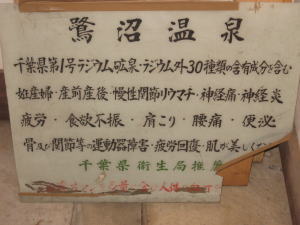 鷺沼温泉
千葉県第1号ラジウム鉱泉・ラジウム外30種類の含有成分を含む
妊産婦・産前産後・慢性関節リウマチ・神経痛・神経炎
疲労・食欲不振・肩こり・腰痛・便泌
骨及び関節等の運動器障害・疲労回復・肌が美しくな
千葉県衛生局推薦